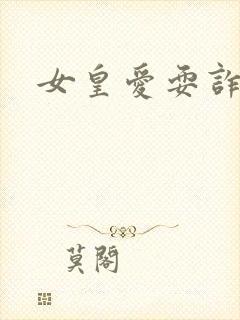 女皇愛耍詐
莫閣